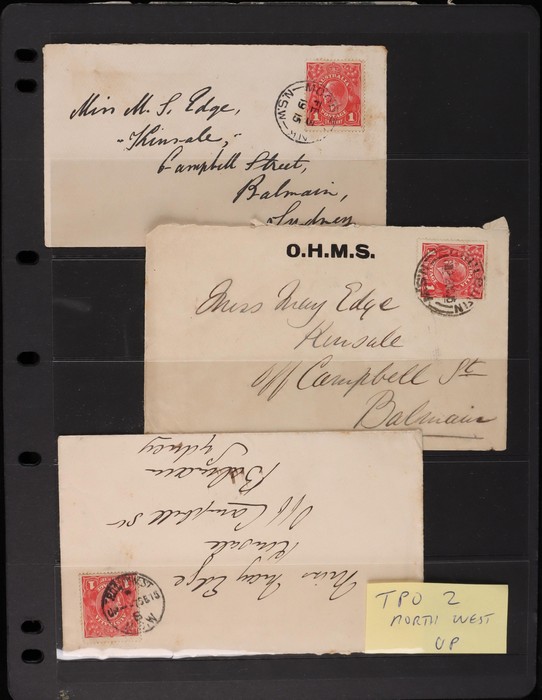 Miss M. S. Edge,
"Kinsale,"
Campbell Street,
Balmain,
Sydney
N.S.W
1 1
O.H.M.S.
Miss May Edge
Kinsale
Off Campbell St
Balmain
N.S.W
Miss May Edge
Kinsale
Off Campbell St
Balmain
Sydney
WEST
N.S.W
TPO 2
NORTH WEST
UP